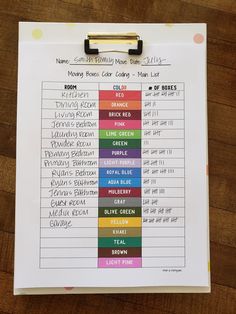 Name: Smith Family Move Date: July
Moving Boxes Color Coding - Main List
ROOM COLOR # OF BOXES
Kitchen RED
Dining Room ORANGE
Living Room BRICK RED
Jenna's Bedroom PINK
Laundry Room LIME GREEN
Powder Room GREEN
Primary Bedroom PURPLE
Primary Bathroom LIGHT PURPLE
Ryan's Bedroom ROYAL BLUE
Ryan's Bathroom AQUA BLUE
Jenna's Bathroom MULBERRY
Guest Room GRAY
Media Room OLIVE GREEN
Garage YELLOW
KHAKI
TEAL
BROWN
LIGHT PINK